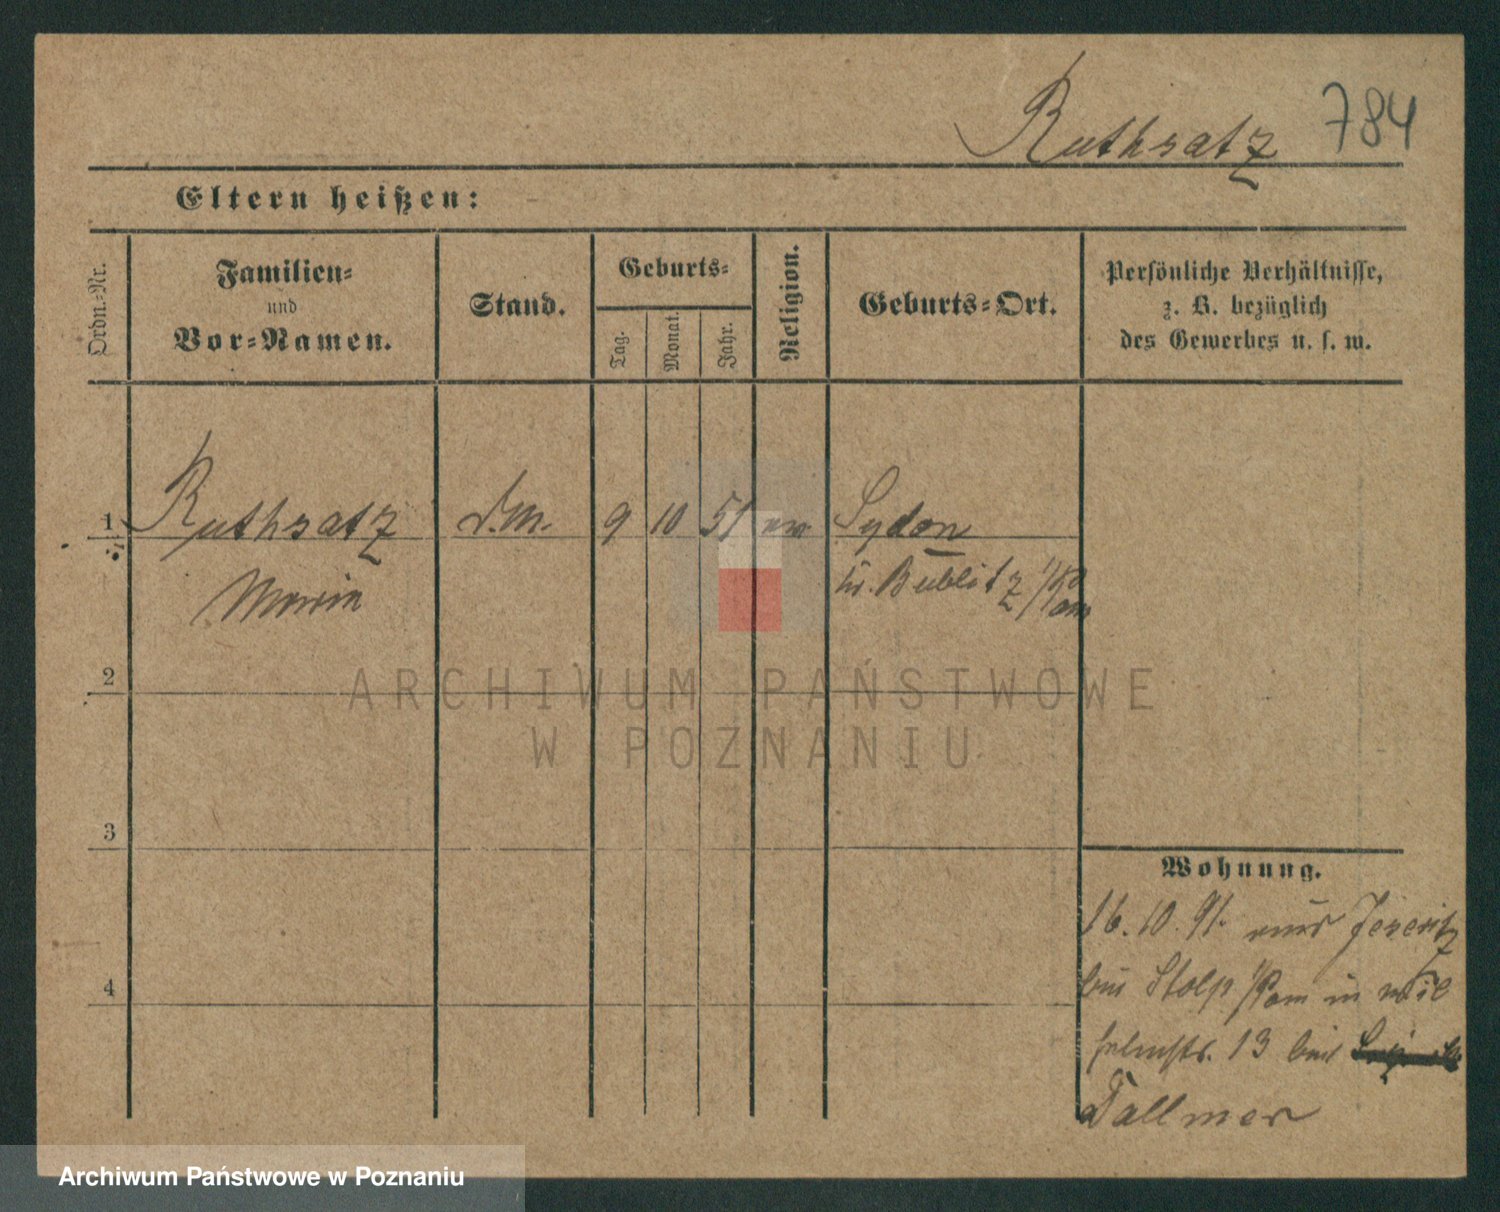 Ruthsatz 784
Eltern heißen:
Ordn.-Nr.
Familien-
und
Vor-Namen.
Stand.
Geburts-
Tag.
Monat.
Jahr.
Religion.
Geburts-Ort.
Persönliche Verhältnisse,
z. B. bezüglich
des Gewerbes u. s. w.
1 Ruthsatz d.M. 9 10 51 ev. Sydon
Marie Kr. Bublitz i/Pom
2
ARCHIWUM PAŃSTWOWE
W POZNANIU
3
4
Wohnung.
16.10.91. aus Jeseritz
bei Stolp i/Pom in Wil
helmstr. 13 bei
Dallmer
Archiwum Państwowe w Poznaniu